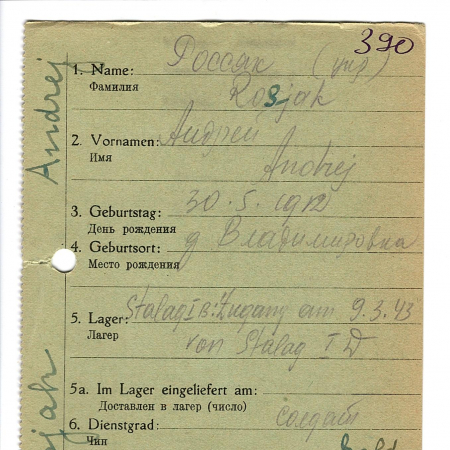 390
1. Name: Россяк (укр.)
Фамилия Rosjak
2. Vornamen: Андрей
Имя Andrej
3. Geburtstag: 30.5.1912
День рождения
4. Geburtsort: д Владимировка
Место рождения
5. Lager: Stalag I B: Zugang am 9.3.43
Лагер von Stalag I D
5a. Im Lager eingeliefert am:
Доставлен в лагер (число)
6. Dienstgrad: солдат
Чин
Andrej